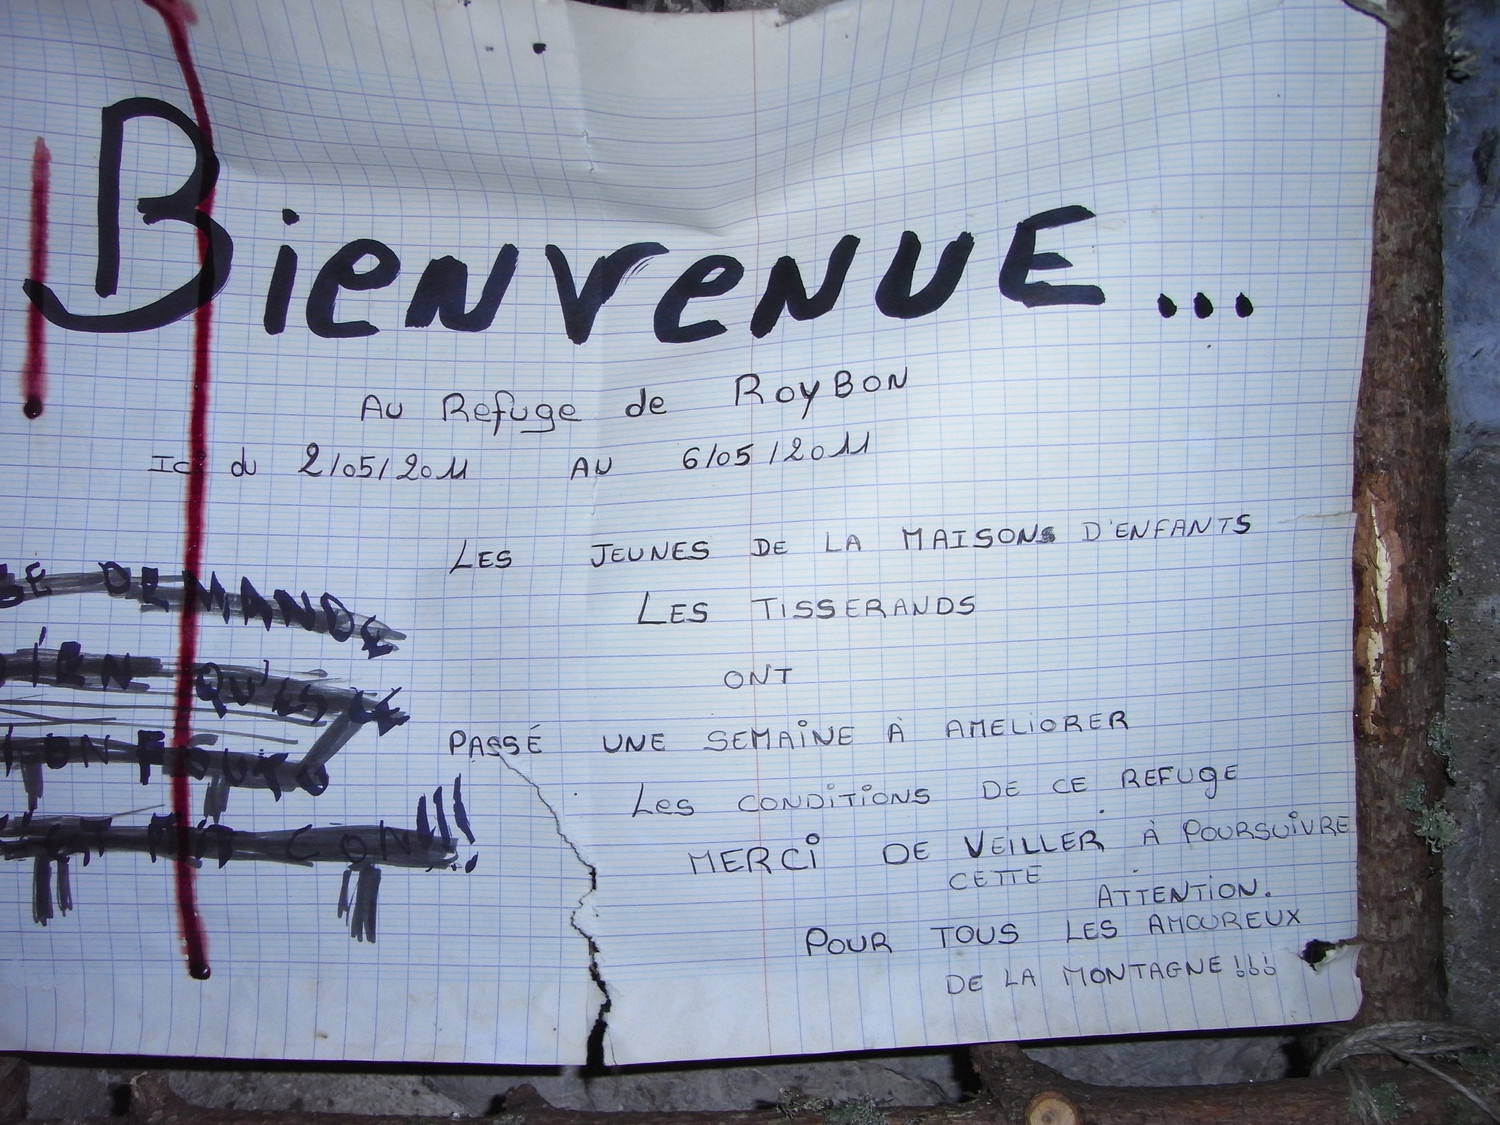 BienVeNUE...
AU Refuge de RoyBON
Ici du 2/05/2011 AU 6/05/2011
LES JEUNES DE LA MAISONS D'ENFANTS
LES TISSERANDS
ONT
PASSÉ UNE SEMAINE À AMELIORER
Les CONDITIONS DE CE REFUGE
MERCI DE VEILLER À POURSUIVRE
CETTE ATTENTION.
POUR TOUS LES AMOUREUX
DE LA MONTAGNE !!!
SE DEMANDE
BIEN QU'EST CE
FOUT
CON!!!